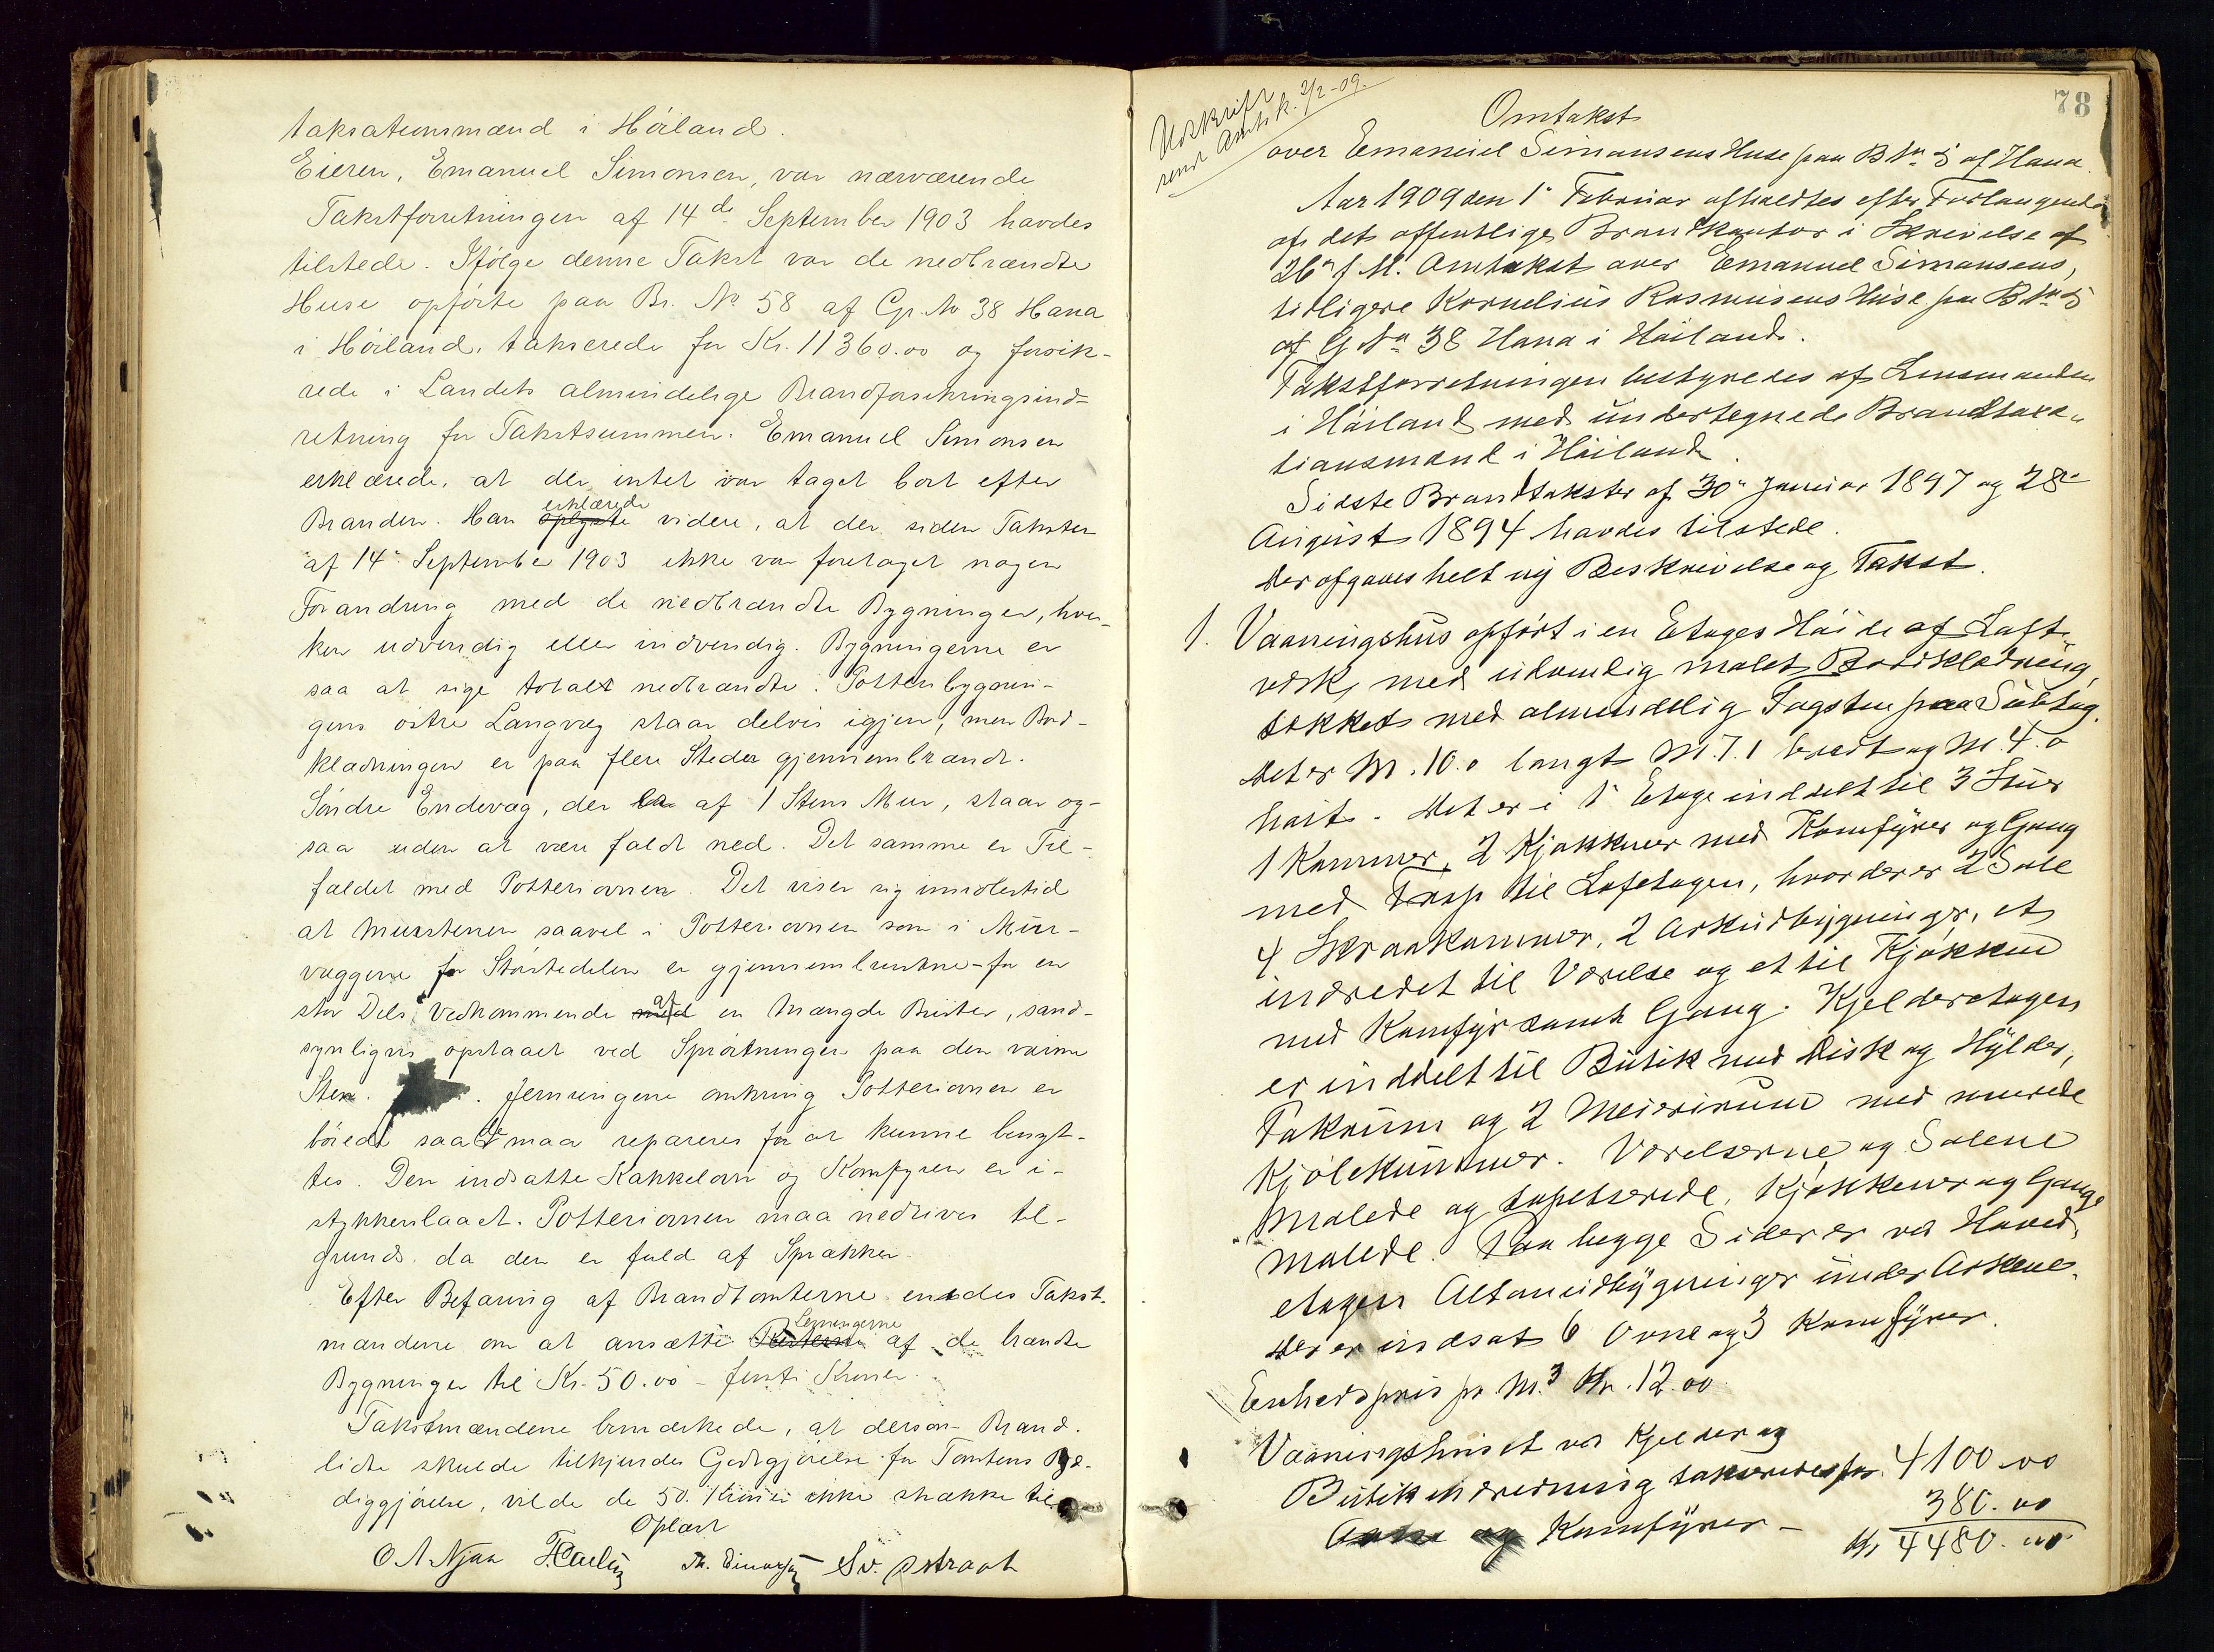 taksationsmænd i Høiland.
Eieren, Emanuel Simonsen, var nærværende
Takstforretningen af 14de September 1903 havdes
tilstede. Ifølge denne Takst var de nedbrændte
Huse opførte paa Br. No 58 af Gr. No 38 Hana
i Høiland, takserede for Kr. 11360.00 og forsik-
rede i Landets almindelige Brandforsikringsind-
retning for Takstsummen. Emanuel Simonsen
erklærede, at der intet var taget bort efter
Branden. Han oplyste erklærede videre, at der siden Taksten
af 14de September 1903 ikke var foretaget nogen
Forandring med de nedbrændte Bygninger, hver-
ken udvendig eller indvendig. Bygningerne er
saa at sige totalt nedbrændte. Potteribygnin-
gens østre Langvæg staar delvis igjen, men Bord-
klædningen er paa flere Steder gjennembrændt.
Søndre Endevæg, der er af 1 Stens Mur, staar og-
saa uden at være faldt ned. Det samme er Til-
fældet med Potteriovnen. Det viser sig imidlertid
at Murstenen saavel i Potteriovnen som i Mur-
væggene for Størstedelen er gjennembrændte - for en
stor Dels Vedkommende med af en Mængde Brister, sand-
synligvis opstaaet ved Sprøitningen paa den varme
Sten. Jernringene omkring Potteriovnen er
bøiede saa de maa repareres for at kunne benyt-
tes. Den indsatte Kakkelovn og Komfyren er i-
stykkerslaaet. Potteriovnen maa nedrives til-
grunds, da den er fuld af Sprækker.
Efter Befaring af Brandtomterne enedes Takst-
mændene om at ansætte Resterne Levningerne af de brændte
Bygninger til Kr. 50.00 - femti Kroner.
Takstmændene bemærkede, at dersom Brand-
lidte skulde tilkjendes Godtgjørelse for Tomtens Ryd-
diggjørelse, vilde de 50 Kroner ikke strække til
Oplæst
O A Njaa Sv. Østraat
78
Udskrift
send Amtsk. 2/2-09.
Omtakst
over Emanuel Simonsens Huse paa B No 5 af Hana.
Aar 1909 den 1ste Februar afholdtes efter Forlangende
af det offentlige Brandkontor i Skrivelse af
26de f. M. Omtakst over Emanuel Simonsens,
tidligere Kornelius Rasmusens Huse paa B No 5
af G No 38 Hana i Høiland.
Takstforretningen bestyredes af Lensmanden
i Høiland med undertegnede Brandtaxa-
tionsmænd i Høiland.
Sidste Brandtakster af 30te Januar 1897 og 28de
August 1894 havdes tilstede.
Der afgaves helt ny Beskrivelse og Takst.
1. Vaaningshus opført i en Etages Høide af Loft-
værk, med udvendig malet Bordklædning,
tækket med almindelig Tagsten paa Sutag.
Det er M. 10.0 langt M. 7.1 bredt og M. 4.0
høit. Det er i 1ste Etage inddelt til 3 Stuer
1 Kammer, 2 Kjøkkener med Komfyrer og Gang
med Trap til Loftetagen, hvor der er 2 Sale
4 Skraakammer, 2 Arkudbygninger, et
indredet til Værelse og et til Kjøkken
med Komfyr samt Gang. Kjelderetagen
er inddelt til Butik med Disk og Hylder,
Pakrum og 2 Meierirum med murede
Kjølekummer. Værelserne og Salene
malede og tapetserede, Kjøkkener og Gange
malede. Paa begge Sider er ved Hoved-
etagen Altanudbygninger under Arkene.
Der er indsat 6 Ovne og 3 Komfyrer.
Enhedspris pr. M.3 Kr. 12.00
Vaaningshuset ved Kjelder og
Butikindredning takseredes for 4100.00
Ovne og Komfyrer - 380.00
Kr 4480.00